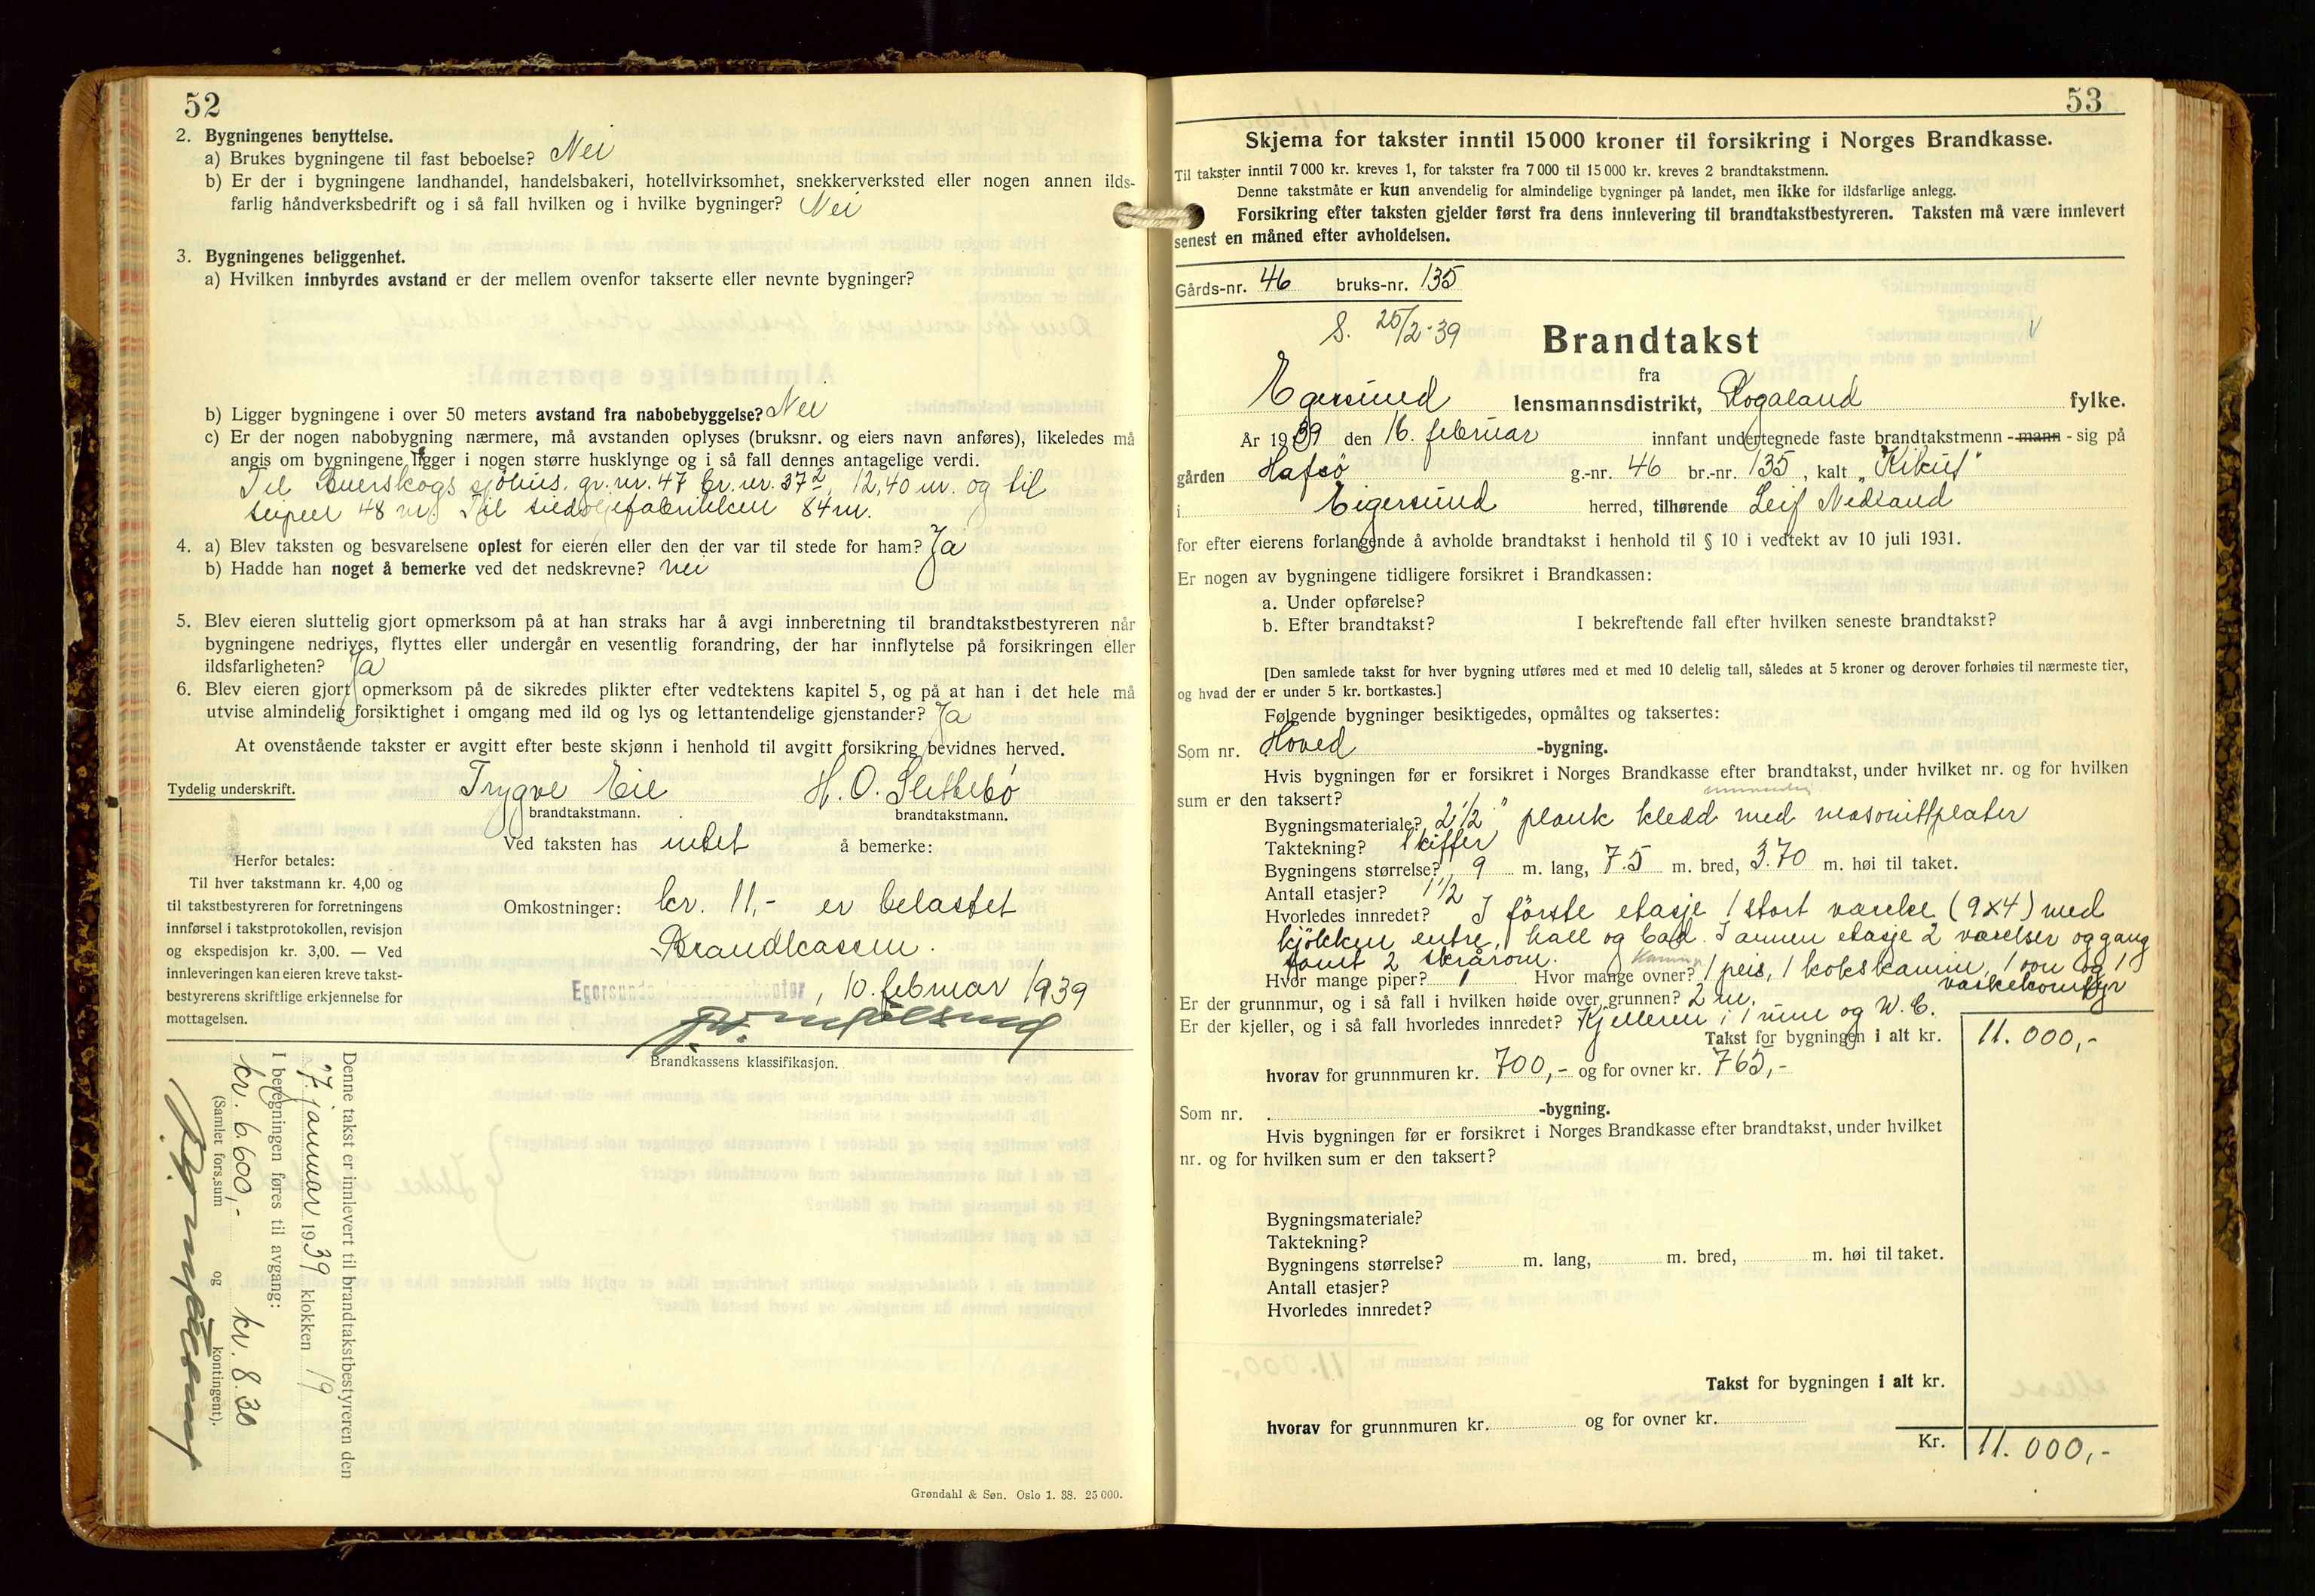 52
2. Bygningenes benyttelse.
a) Brukes bygningene til fast beboelse? Nei
b) Er der i bygningene landhandel, handelsbakeri, hotellvirksomhet, snekkerverksted eller nogen annen ilds-
farlig håndverksbedrift og i så fall hvilken og i hvilke bygninger? Nei
3. Bygningenes beliggenhet.
a) Hvilken innbyrdes avstand er der mellem ovenfor takserte eller nevnte bygninger?
b) Ligger bygningene i over 50 meters avstand fra nabobebyggelse? Nei
c) Er der nogen nabobygning nærmere, må avstanden oplyses (bruksnr. og eiers navn anføres), likeledes må
angis om bygningene ligger i nogen større husklynge og i så fall dennes antagelige verdi.
Til Buerskogs sjöhus, gr. nr. 47 br. nr. 372, 12,40 m. og til
48 m. Til sildoljefabrikken 84 m.
4. a) Blev taksten og besvarelsene oplest for eieren eller den der var til stede for ham? Ja
b) Hadde han noget å bemerke ved det nedskrevne? nei
5. Blev eieren sluttelig gjort opmerksom på at han straks har å avgi innberetning til brandtakstbestyreren når
bygningene nedrives, flyttes eller undergår en vesentlig forandring, der har innflytelse på forsikringen eller
ildsfarligheten? Ja
6. Blev eieren gjort opmerksom på de sikredes plikter efter vedtektens kapitel 5, og på at han i det hele må
utvise almindelig forsiktighet i omgang med ild og lys og lettantendelige gjenstander? Ja
At ovenstående takster er avgitt efter beste skjønn i henhold til avgitt forsikring bevidnes herved.
Tydelig underskrift. Trygve Eie H. O. Slettebö
brandtakstmann. brandtakstmann.
Ved taksten has intet å bemerke:
Herfor betales:
Til hver takstmann kr. 4,00 og
til takstbestyreren for forretningens
innførsel i takstprotokollen, revisjon
og ekspedisjon kr. 3,00. — Ved
innleveringen kan eieren kreve takst-
bestyrerens skriftlige erkjennelse for
mottagelsen.
Omkostninger: kr. 11,- er belastet
Brandkassen.
Egersunds lensmannskontor, 10. februar 1939
Brandkassens klassifikasjon.
Denne takst er innlevert til brandtakstbestyreren den
7. januar 1939 klokken 19
I beregningen føres til avgang:
kr. 6.600,- kr. 8.30
(Samlet fors.sum og kontingent).
Grøndahl & Søn. Oslo 1. 38. 25 000.
53
Skjema for takster inntil 15 000 kroner til forsikring i Norges Brandkasse.
Til takster inntil 7 000 kr. kreves 1, for takster fra 7 000 til 15 000 kr. kreves 2 brandtakstmenn.
Denne takstmåte er kun anvendelig for almindelige bygninger på landet, men ikke for ildsfarlige anlegg.
Forsikring efter taksten gjelder først fra dens innlevering til brandtakstbestyreren. Taksten må være innlevert
senest en måned efter avholdelsen.
Gårds-nr. 46 bruks-nr. 135
S. 25/2-39
Brandtakst
fra
Egersund lensmannsdistrikt, Rogaland fylke.
År 1939 den 16. februar innfant undertegnede faste brandtakstmenn - mann - sig på
gården Hafsö g.-nr. 46 br.-nr. 135, kalt „Kikut"
i Eigersund herred, tilhørende Leif Nedland
for efter eierens forlangende å avholde brandtakst i henhold til § 10 i vedtekt av 10 juli 1931.
Er nogen av bygningene tidligere forsikret i Brandkassen:
a. Under opførelse?
b. Efter brandtakst? I bekreftende fall efter hvilken seneste brandtakst?
[Den samlede takst for hver bygning utføres med et med 10 delelig tall, således at 5 kroner og derover forhøies til nærmeste tier,
og hvad der er under 5 kr. bortkastes.]
Følgende bygninger besiktigedes, opmåltes og taksertes:
Som nr. Hoved -bygning.
Hvis bygningen før er forsikret i Norges Brandkasse efter brandtakst, under hvilket nr. og for hvilken
sum er den taksert?
Bygningsmateriale? 2 1/2" plank kledd med masonittplater
Taktekning? Skiffer
Bygningens størrelse? 9 m. lang, 7.5 m. bred, 3.70 m. høi til taket.
Antall etasjer? 1 1/2
Hvorledes innredet? I förste etasje 1 stort værelse (9x4) med
kjökken entre, hall og bad. I annen etasje 2 værelser og gang
samt 2 skrårom.
Hvor mange piper? 1 Hvor mange ovner? 1 peis, 1 kokskamin, 1 ovn og 1
vaskekomfyr
Er der grunnmur, og i så fall i hvilken høide over grunnen? 2 m.
Er der kjeller, og i så fall hvorledes innredet? Kjelleren i 1 rum og W. C.
Takst for bygningen i alt kr. 11.000,-
hvorav for grunnmuren kr. 700,- og for ovner kr. 765,-
Som nr. -bygning.
Hvis bygningen før er forsikret i Norges Brandkasse efter brandtakst, under hvilket
nr. og for hvilken sum er den taksert?
Bygningsmateriale?
Taktekning?
Bygningens størrelse? m. lang, m. bred, m. høi til taket.
Antall etasjer?
Hvorledes innredet?
Takst for bygningen i alt kr.
hvorav for grunnmuren kr. og for ovner kr.
Kr. 11.000,-